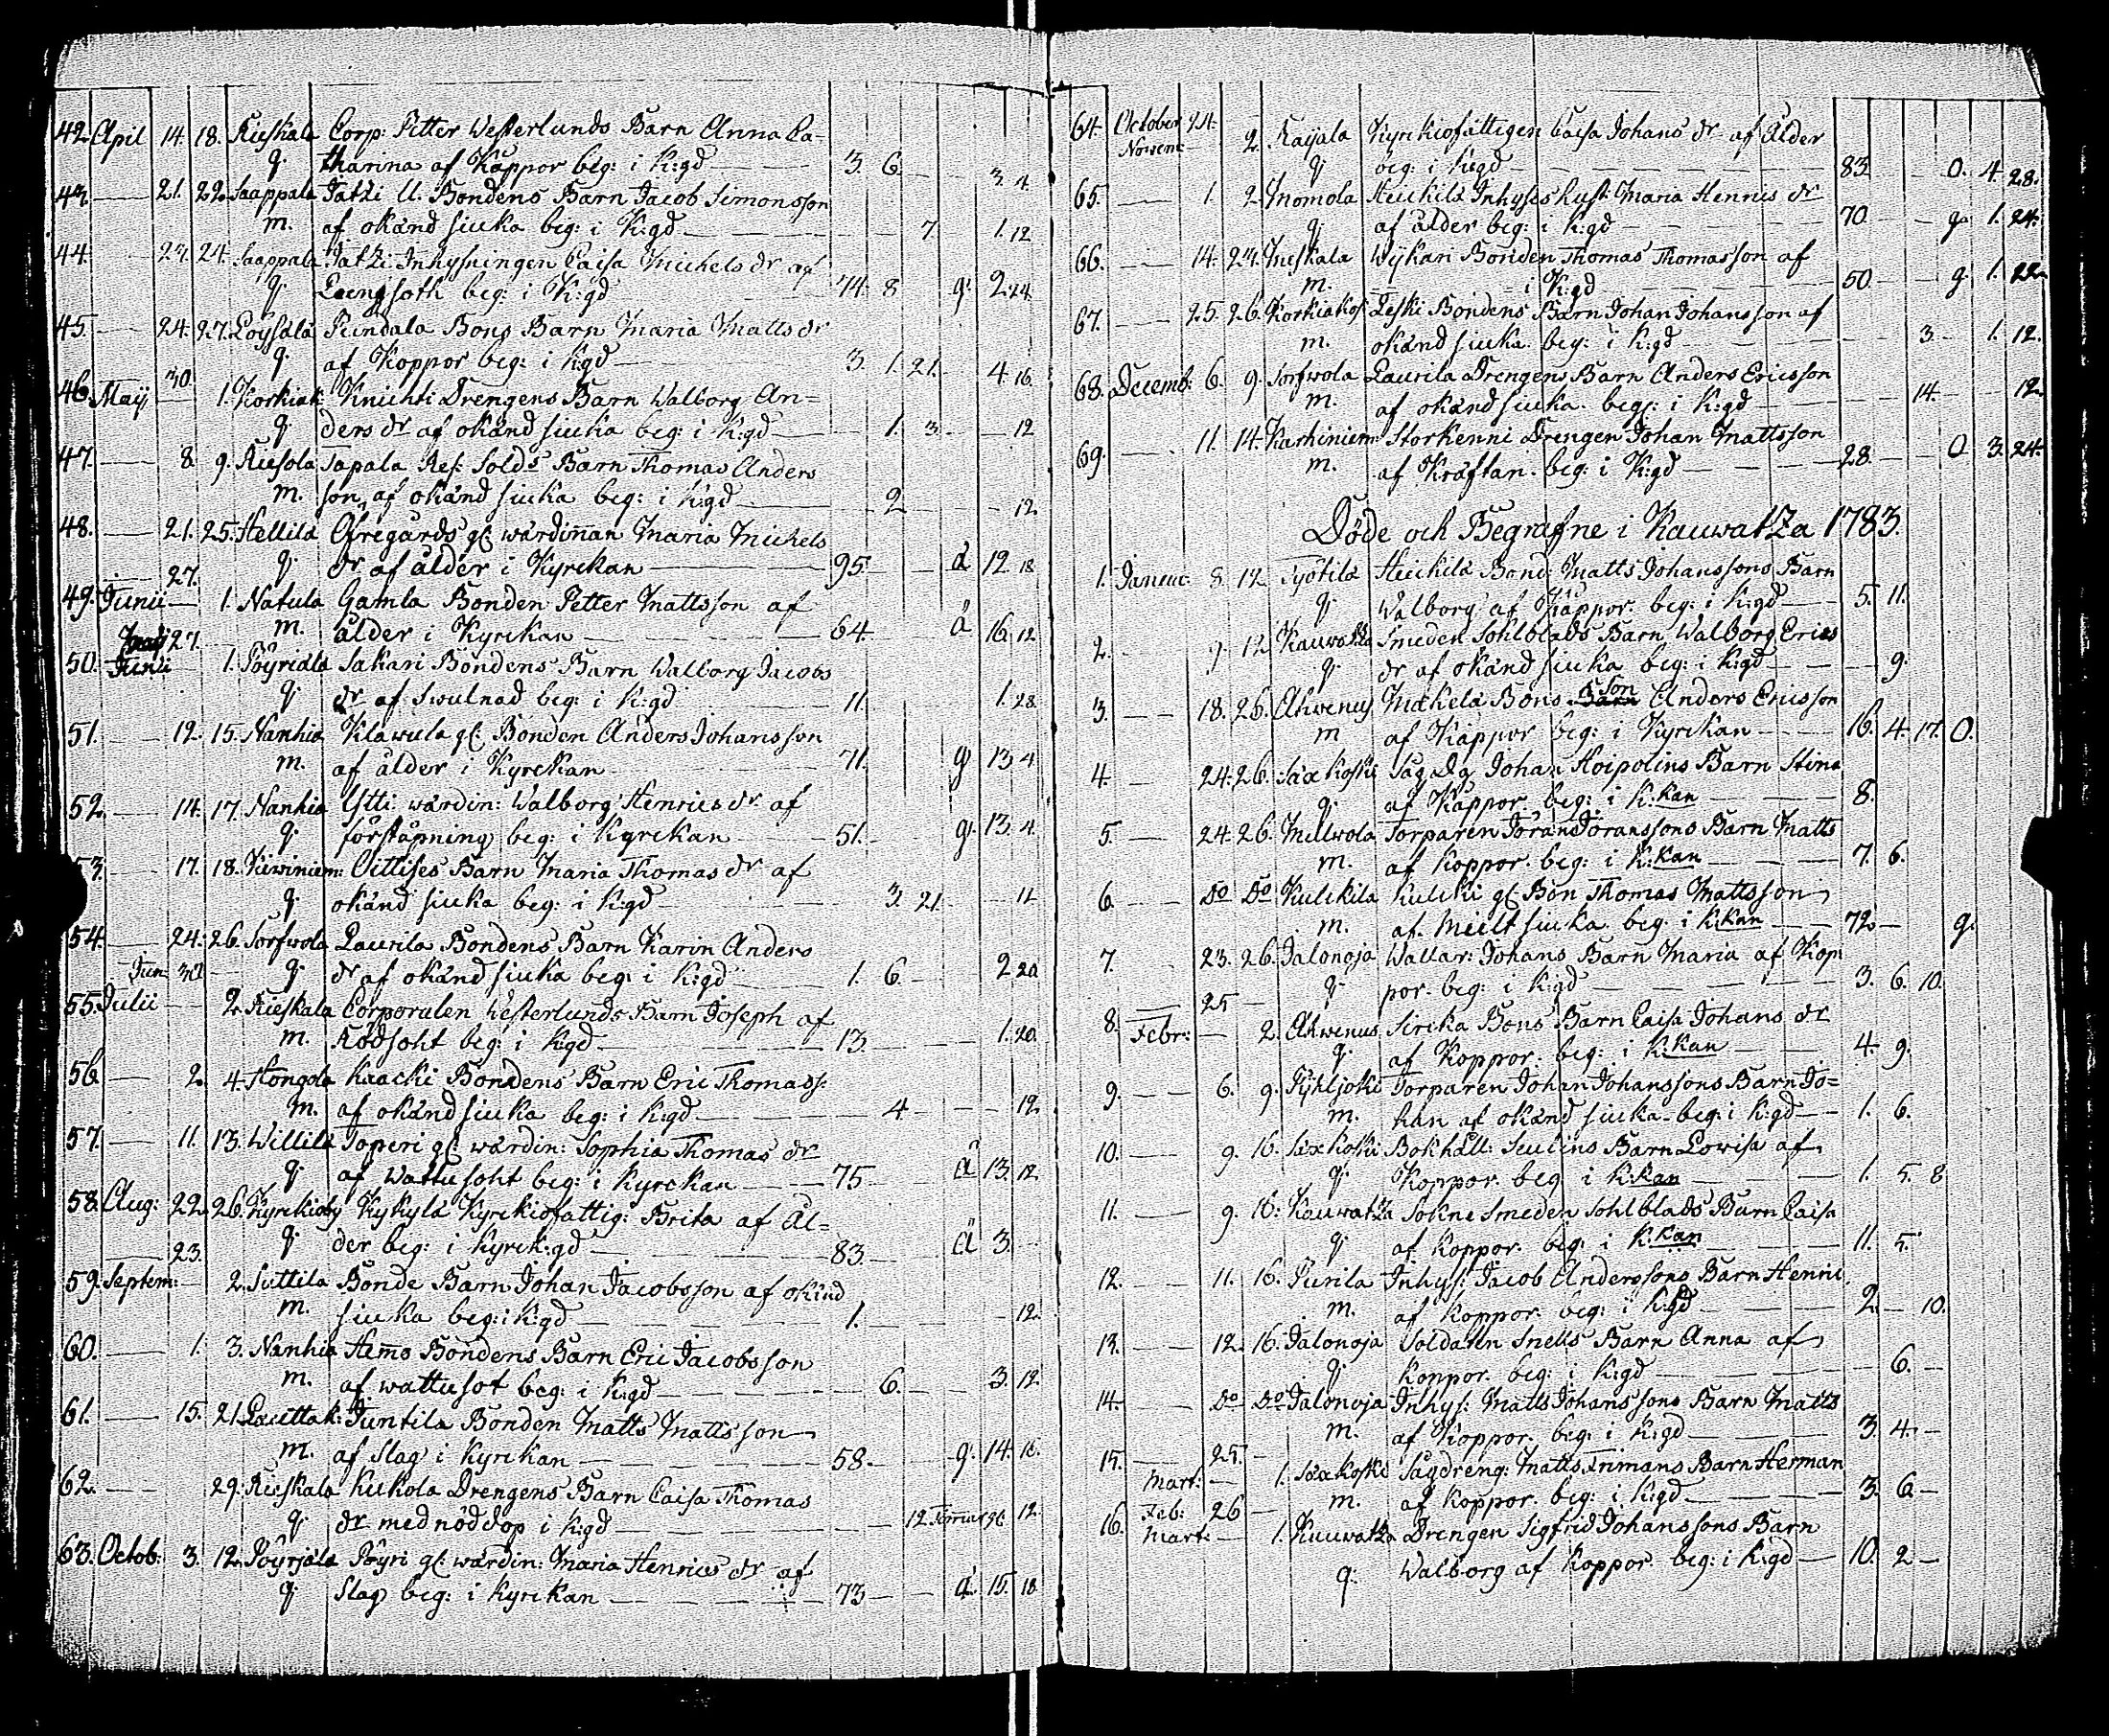 42. Apil 14. 18. Rieskala Corp: Petter Westerlunds Barn Anna Ca-
q. tharina af Kåppor beg: i K:gd 3. 6. 3. 4.
43. 21. 22. Saappala Tatzi U. Bondens Barn Jacob Simonsson
m. af okänd siuka beg: i K:gd 7. 1. 12
44. 24. Saappala Tatzi Inhysningen Caisa Michels dr af
q. Lengsoth beg: i K:gd 74. 8 g. 2. 24.
45. 24. 27. Löysälä Bons Barn Maria Matts dr
q. af Koppor beg: i K:gd 3. 1. 21. 4. 16.
46. Maij 30. 1. Korkiak: Knichti Drengens Barn Walborg An=
q. ders dr af okänd siuka beg: i K:gd 1. 3. 12
47. 8. 9. Riesola Sapala Ref: Solds Barn Thomas Anders
m. son, af okänd siuka beg: i K:gd 2 12.
48. 21. 25. Hellilä Öfregårds gl: wärdinnan Maria Michels
q. dr af ålder i Kyrckan 95. å 12 18
27.
49. Junii 1. Natula Gamla Bonden Petter Mattsson af
m. ålder i Kyrckan 64. å 16. 12.
Maij 27.
50. Junii 1. Pöyriälä Sakari Bondens Barn Walborg Jacobs
q. dr af swulnad beg: i K:gd 11. 1. 28.
51. 12. 15. Nanhia Klawula gl: Bonden Anders Johansson
m. af ålder i Kyrckan 71. g 13 4
52. 14. 17. Nanhia Ytti wärdin: Walborg Henrics dr af
q. förståpning beg: i Kyrckan 51. g. 13. 4.
53. 17. 18. Kiwiniem: Oittises Barn Maria Thomas dr af
q. okänd siuka beg: i K:gd 3. 21. 11.
54. 24. 26. Sorfwola Laurila Bondens Barn Karin Anders
Jun 30 q. dr af okänd siuka beg: i K:gd 1. 6. 2 20
55. Julii 2. Rieskala Corporalen Westerlunds Barn Joseph af
m. Rödsoht beg: i K:gd 13. 1. 20.
56. 2. 4. Hongola Kaacki Bondens Barn Eric Thomass:
m. af okänd siuka beg: i K:gd 4 12.
57. 11. 13. Willilä Toperi gl: wärdin: Sophia Thomas dr
q. af Wattusoht beg: i Kyrckan 75 å 13. 12.
58. Aug: 22. 26. Kyrckioby Kykylä Kyrckiofattig: Brita af Ål=
23. q. der beg: i Kyrck:gd 83. å 3.
59. Septem: 2. Suttila Bonde Barn Johan Jacobsson af okänd
m. siuka beg: i K:gd 1. 12.
60. 1. 3. Nanhia Hemo Bondens Barn Eric Jacobsson
m. af wattusot beg: i K:gd 6. 3. 12.
61. 15. 21. Lauttak: Juntila Bonden Matts Mattsson
m. af Slag i Kyrckan 58. g. 14. 16.
62. 29. Rieskala Kukola Drengens Barn Caisa Thomas
q. dr med nöddop i K:gd 12 12.
63. Octob: 3. 12. Pöyriälä Pöyri gl: wärdin: Maria Henrics dr af
q. Slag beg: i Kyrckan 73 å 15. 18.
64. October 24.
Novem: 2. Kaijala Kyrckiofattigen Caisa Johans dr af Ålder
q. beg: i K:gd 83 0. 4. 28.
65. 1. 2. Inomola Heickilä Inhyses hust: Maria Henrics dr
q. af ålder beg: i K:gd 70 g. 1. 24.
66. 14. 24. Wykari Bonden Thomas Thomasson af
m. i K:gd 50 g. 1. 22
67. 25. 26. Korkiakos Leski Bondens Barn Johan Johansson af
m. okänd siuka beg: i K:gd 3. 1. 12.
68. Decemb: 6. 9. Sorfwola Laurila Drengens Barn Anders Ericsson
m. af okänd siuka beg: i K:gd 14. 12.
69. 11. 14. Karhiniem: Storkenni Drengen Johan Mattsson
m. af Kräftan beg: i K:gd 28. 0 3. 24.
Döde och Begrafne i KauwatZa 1783.
1. Januar: 8. 12. Pyötilä Heickilä Bond: Matts Johanssons Barn
q. Walborg af Kåppor beg: i K:gd 5. 11.
2. 9. 12. Kauwatza Smeden Sohlblads Barn Walborg Erics
q. dr af okänd siuka beg: i K:gd 9.
3. 18. 26. Ahwenus Mäkelä Bons Son Anders Ericsson
m af Kåppor beg: i Kyrckan 16. 4. 17. 0.
4. 24. 26. Säxkoski Såg Dg Johan Hoipolins Barn Stina
q. af Kåppor beg: i K:kan 8.
5. 24. 26. Torparen Jöran Joranssons Barn Matts
m. af koppor beg: i K:kan 7. 6.
6. Do Do Kulckila Kulcki gl: Bon Thomas Mattsson
m. af. Mielt siuka beg: i K:kan 72. g.
7. 23. 26. Jalonoja Wallar: Johans Barn Maria af Kop
q. por beg: i K:gd 3. 6. 10.
25
8. Febr: 2. Ahwenus Sircka Bons Barn Caisa Johans dr
q. af Koppor beg: i K:kan 4. 9.
9. 6. 9. Pyhljoki Torparen Johan Johanssons Barn Jo=
m. han af okänd siuka beg: i K:gd 1. 6.
10. 9. 16. Säxkoski Bokhåll: Seulins Barn Lowisa af
q. Koppor beg i K:kan 1. 5. 8
11. 9. 16. Kauwatza Sokne Smeden Sohlblads Barn Caisa
q. af koppor beg: i K:kan 11. 5.
12. 11. 16. Purila Inhys: Jacob Anderssons Barn Henric
m. af koppor beg: i K:gd 2. 10.
13. 12. 16. Jalonoja Soldaten Snells Barn Anna af
q. koppor beg: i K:gd 6.
14. Do Do Jalonoja Inhys: Matts Johanssons Barn Matts
m. af Koppor beg: i K:gd 3. 4.
15. 25.
Mart: 1. Säxkoski Sågdreng: Matts Barn Herman
m. af koppor beg: i K:gd 3. 6
16. Feb: 26
Mart: 1. Kauwatza Drengen Sigfrid Johanssons Barn
q. Walborg af koppor beg: i K:gd 10. 2